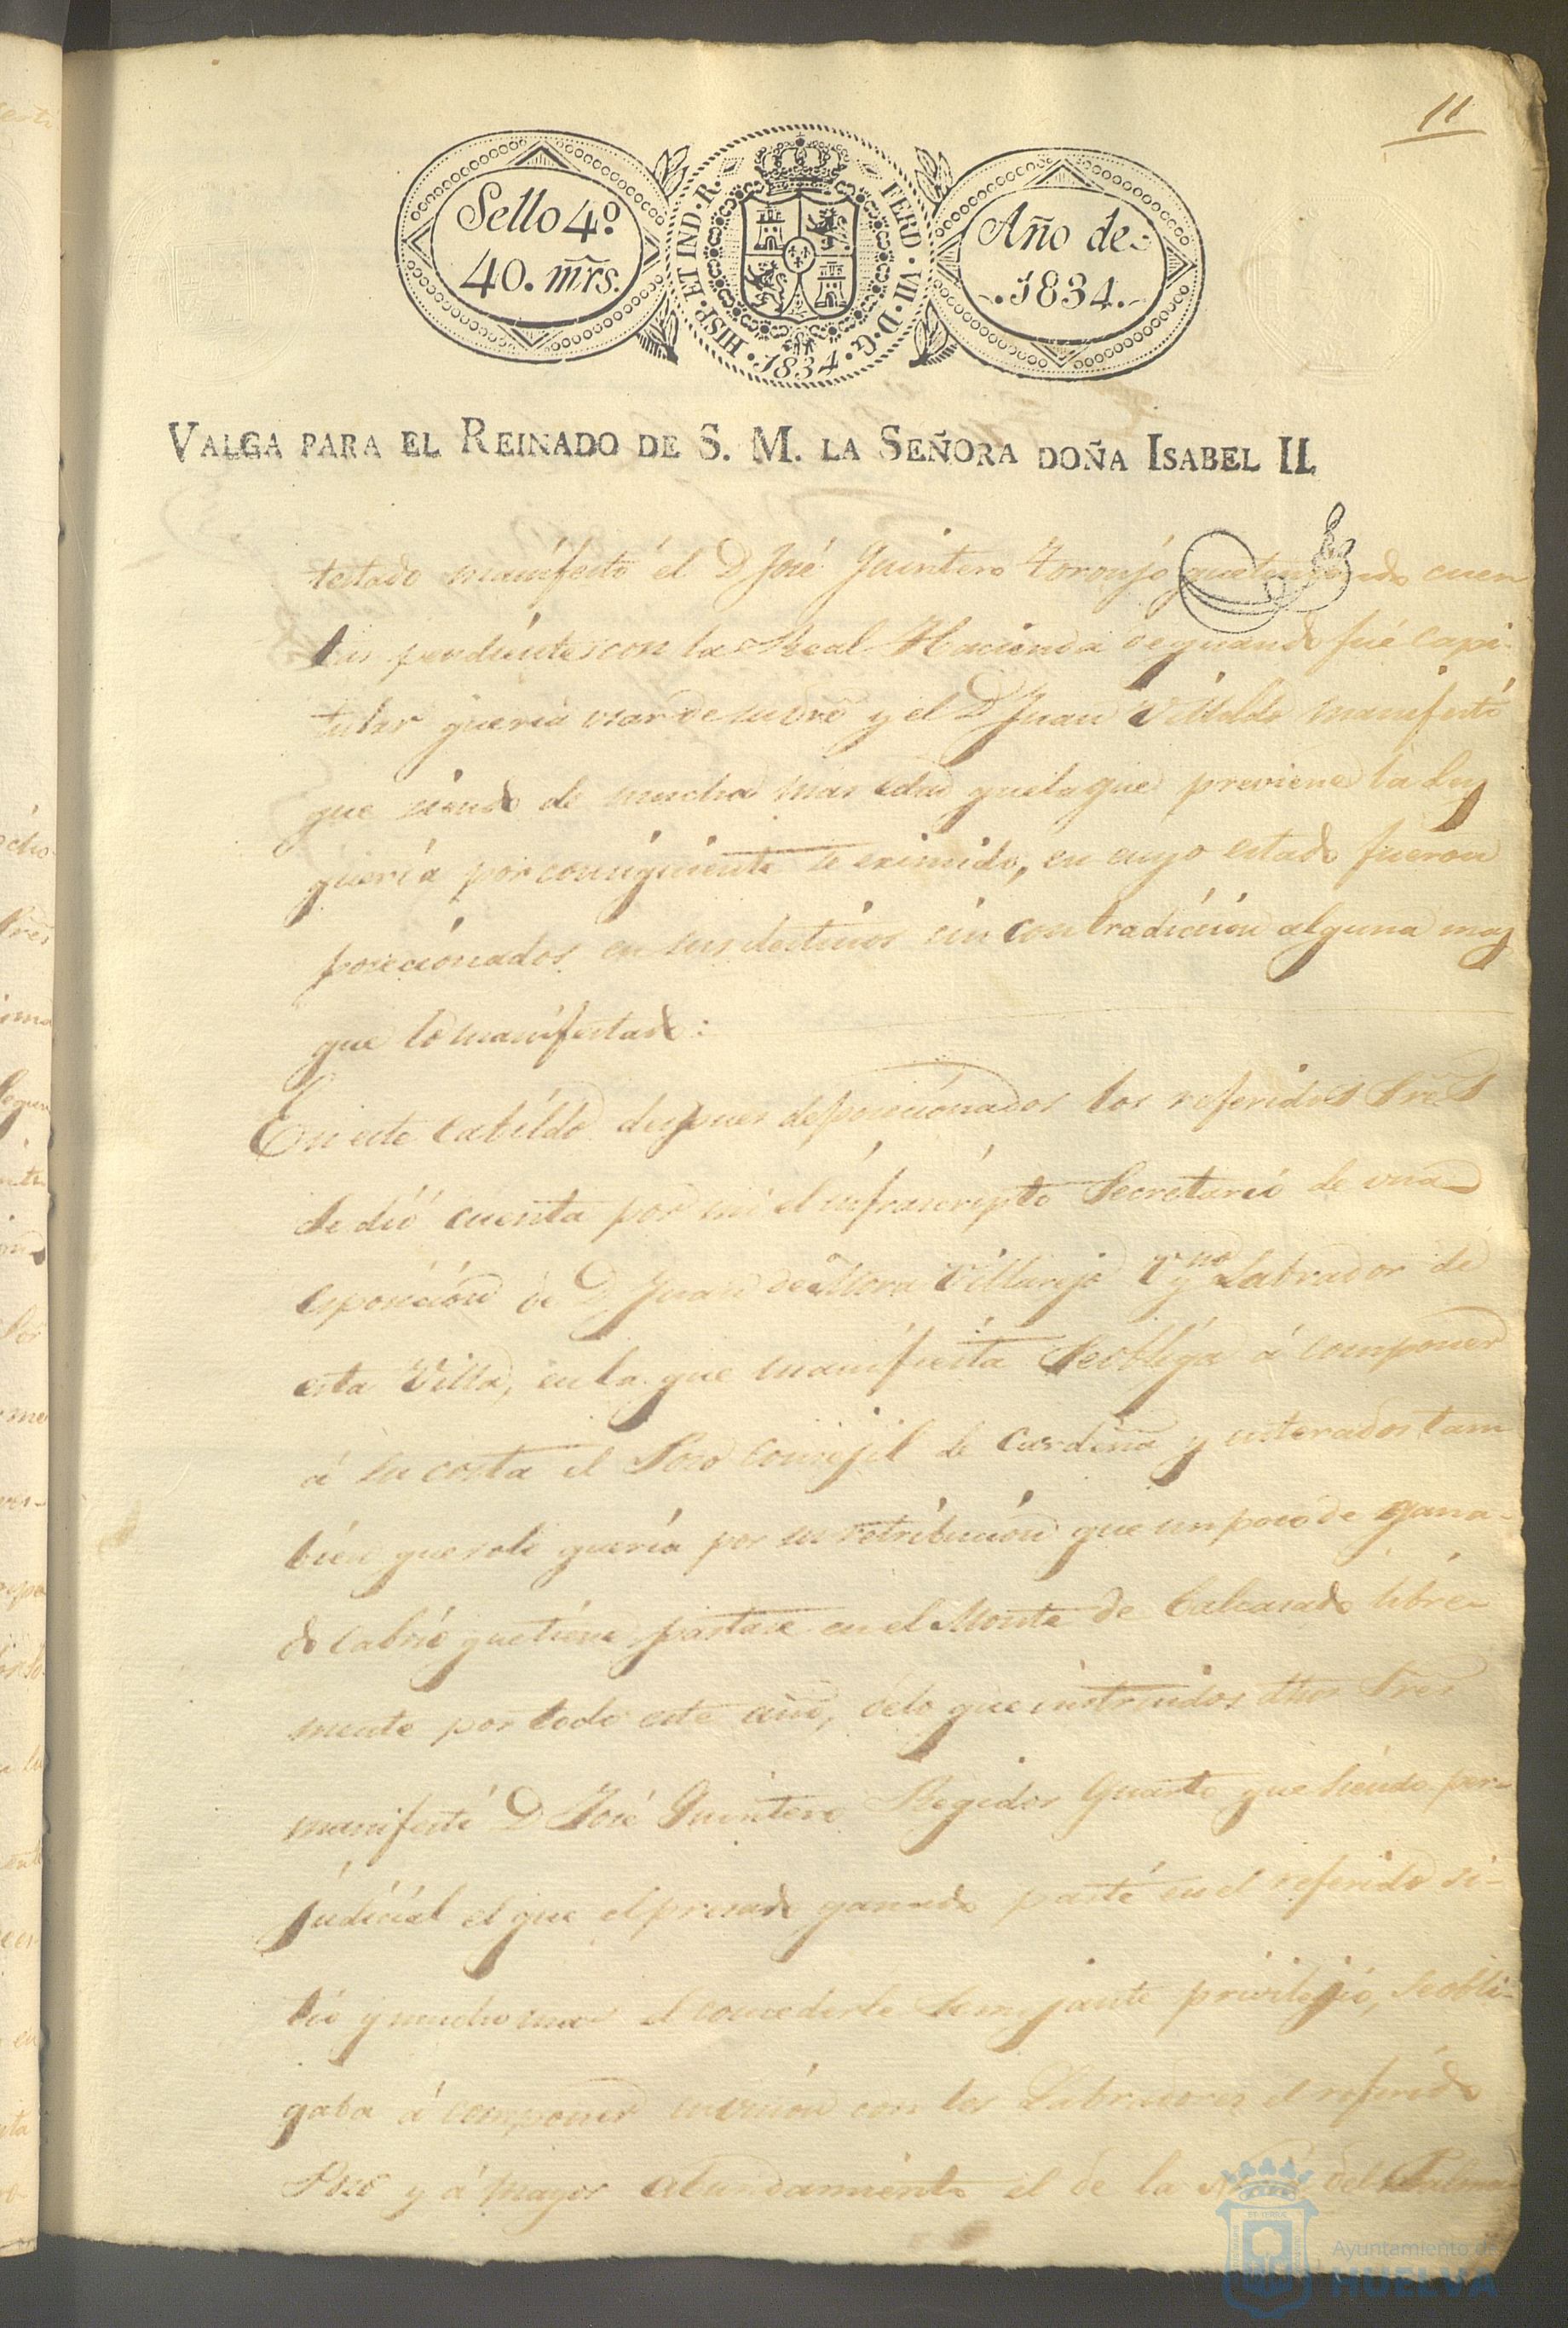 11
Sello 4º
40. mrs.
HISP. ET IND. R. FERD. VII. D. G. 1834.
Año de
1834.
VALGA PARA EL REINADO DE S. M. LA SEÑORA DOÑA ISABEL II.
testado manifestó él D José Quintero Toronjo que teniendo cuen
tas pendientes con la Real Hacienda de quando fué capi
tular queria usar de su dro y el D Juan manifestó
que siendo de mucha mas edad que la que previene la Ley
quería por consiguiente se eximido, en cuyo estado fueron
posecionados en sus destinos sin contradicion alguna mas
que lo manifestado:
En este Cabildo despues de posecionados los referidos Sres
se dió cuenta por mi el infrascripto Secretario de una
esposición de D Juan de Mora Villarejo Vno y Labrador de
esta Villa, en la que manifiesta se obliga á componer
á su costa el Poso Consejil de Cardeña y enterados tam
bien que solo quería por su retribución que un poco de gana-
do cabrio que tiene pastase en el Monte de libre-
mente por todo este año, de lo que instruidos dhos Sres
manifestó D José Quintero Regidor Quarto que siendo per-
judicial el que el presado ganado paste en el referido si-
tio y mucho mas el concederle semejante privilejio, se obli-
gaba á componer en union con los Labradores el referido
Poso y á mayor abundamiento el de la del
Ayuntamiento de
HUELVA